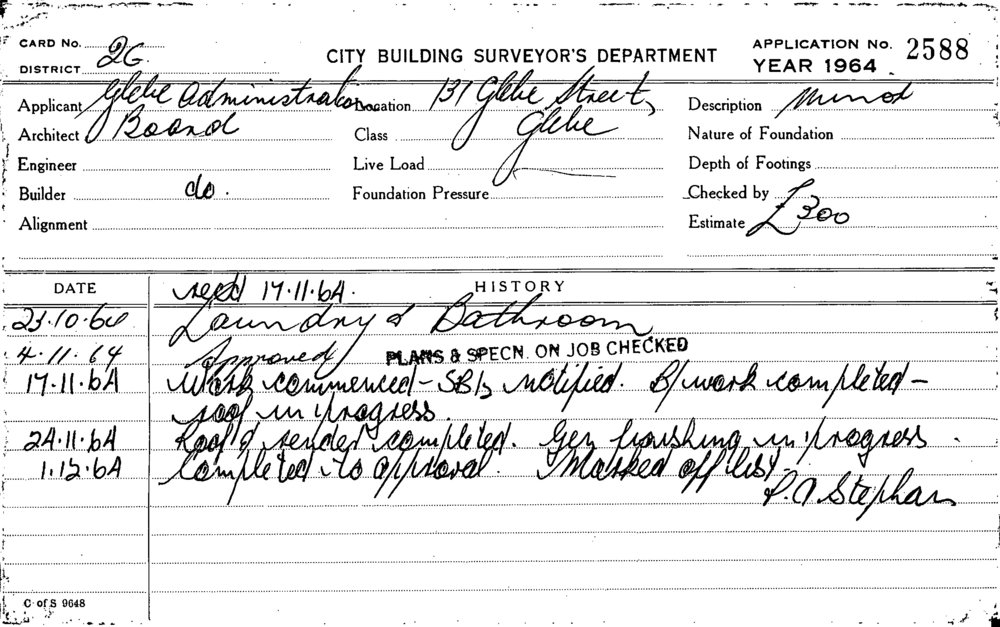 CARD No. 2G
DISTRICT
CITY BUILDING SURVEYOR'S DEPARTMENT
APPLICATION No. 2588
YEAR 1964
Applicant Glebe Administration
Location 131 Glebe Street,
Description Minor
Architect Board
Class Glebe
Nature of Foundation
Engineer
Live Load
Depth of Footings
Builder do.
Foundation Pressure
Checked by
Estimate £300
Alignment
DATE
HISTORY
17.11.64.
23.10.64 Laundry & Bathroom
4.11.64 Approved PLANS & SPECN. ON JOB CHECKED
17.11.64 Work commenced - notified. B/work completed -
roof in progress.
24.11.64 Roof & render completed. Gen finishing in progress.
1.12.64 Completed to approval. Marked off list
Stephan
C of S 9648